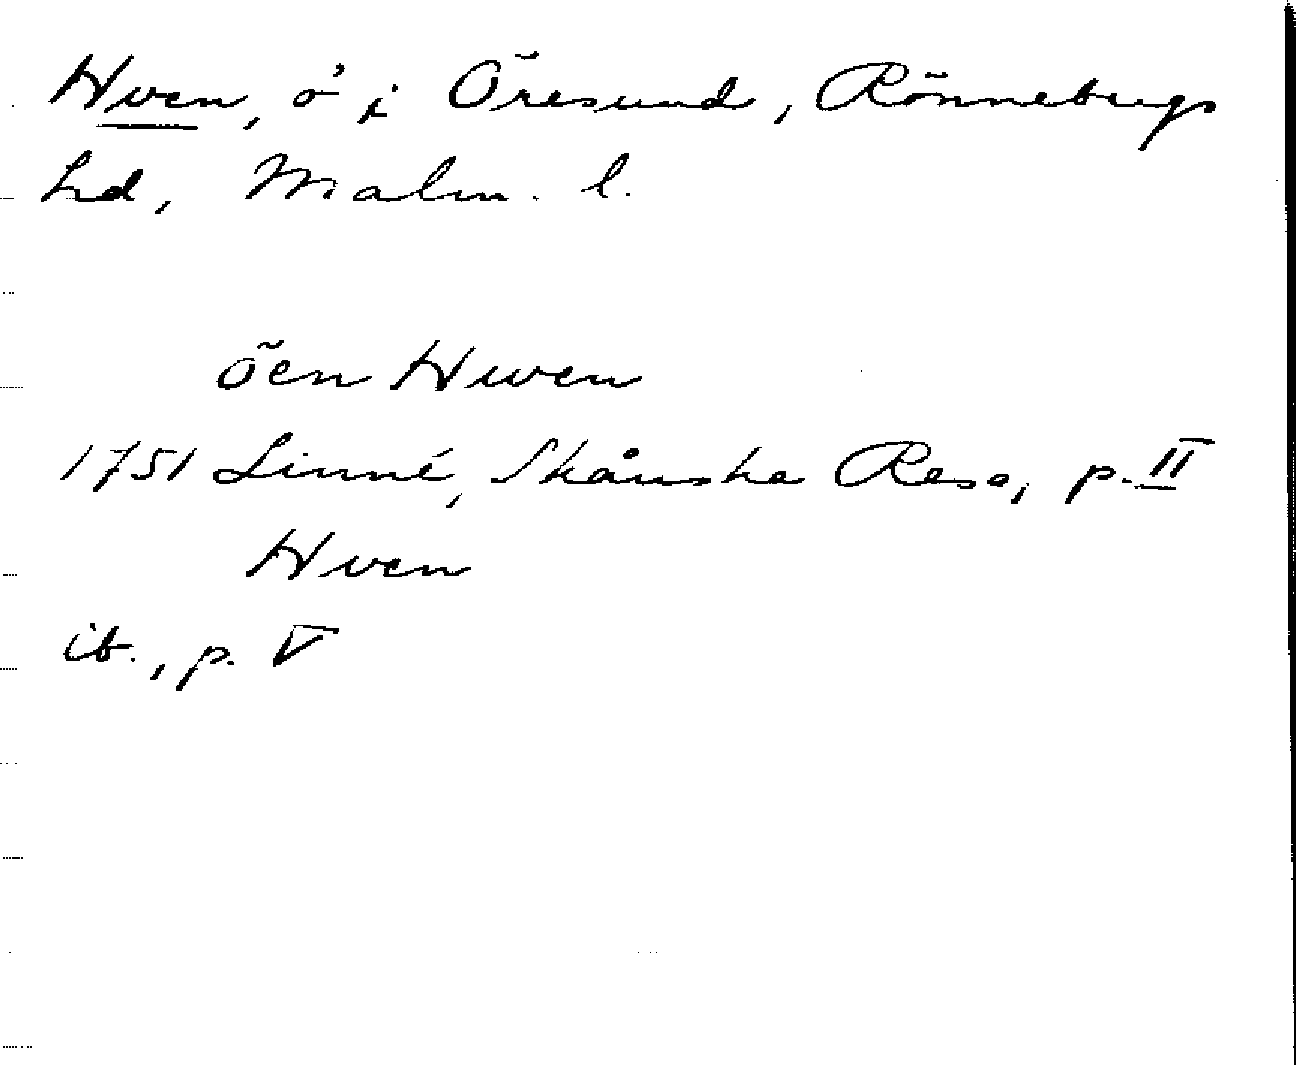 Hven, ö i Öresund, Rönnebergs
hd, Malm. l.
öen Hwen
1751 Linné, Skånska Resa, p. II
Hven
ib., p. V